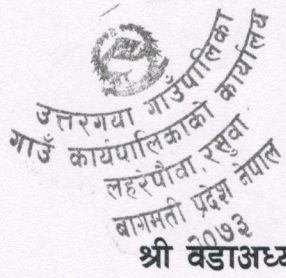 उत्तरगया गाउँपालिका
गाउँ कार्यपालिकाको कार्यालय
लहरेपौवा, रसुवा
बागमती प्रदेश नेपाल
२०७३
श्री वडाअध्य